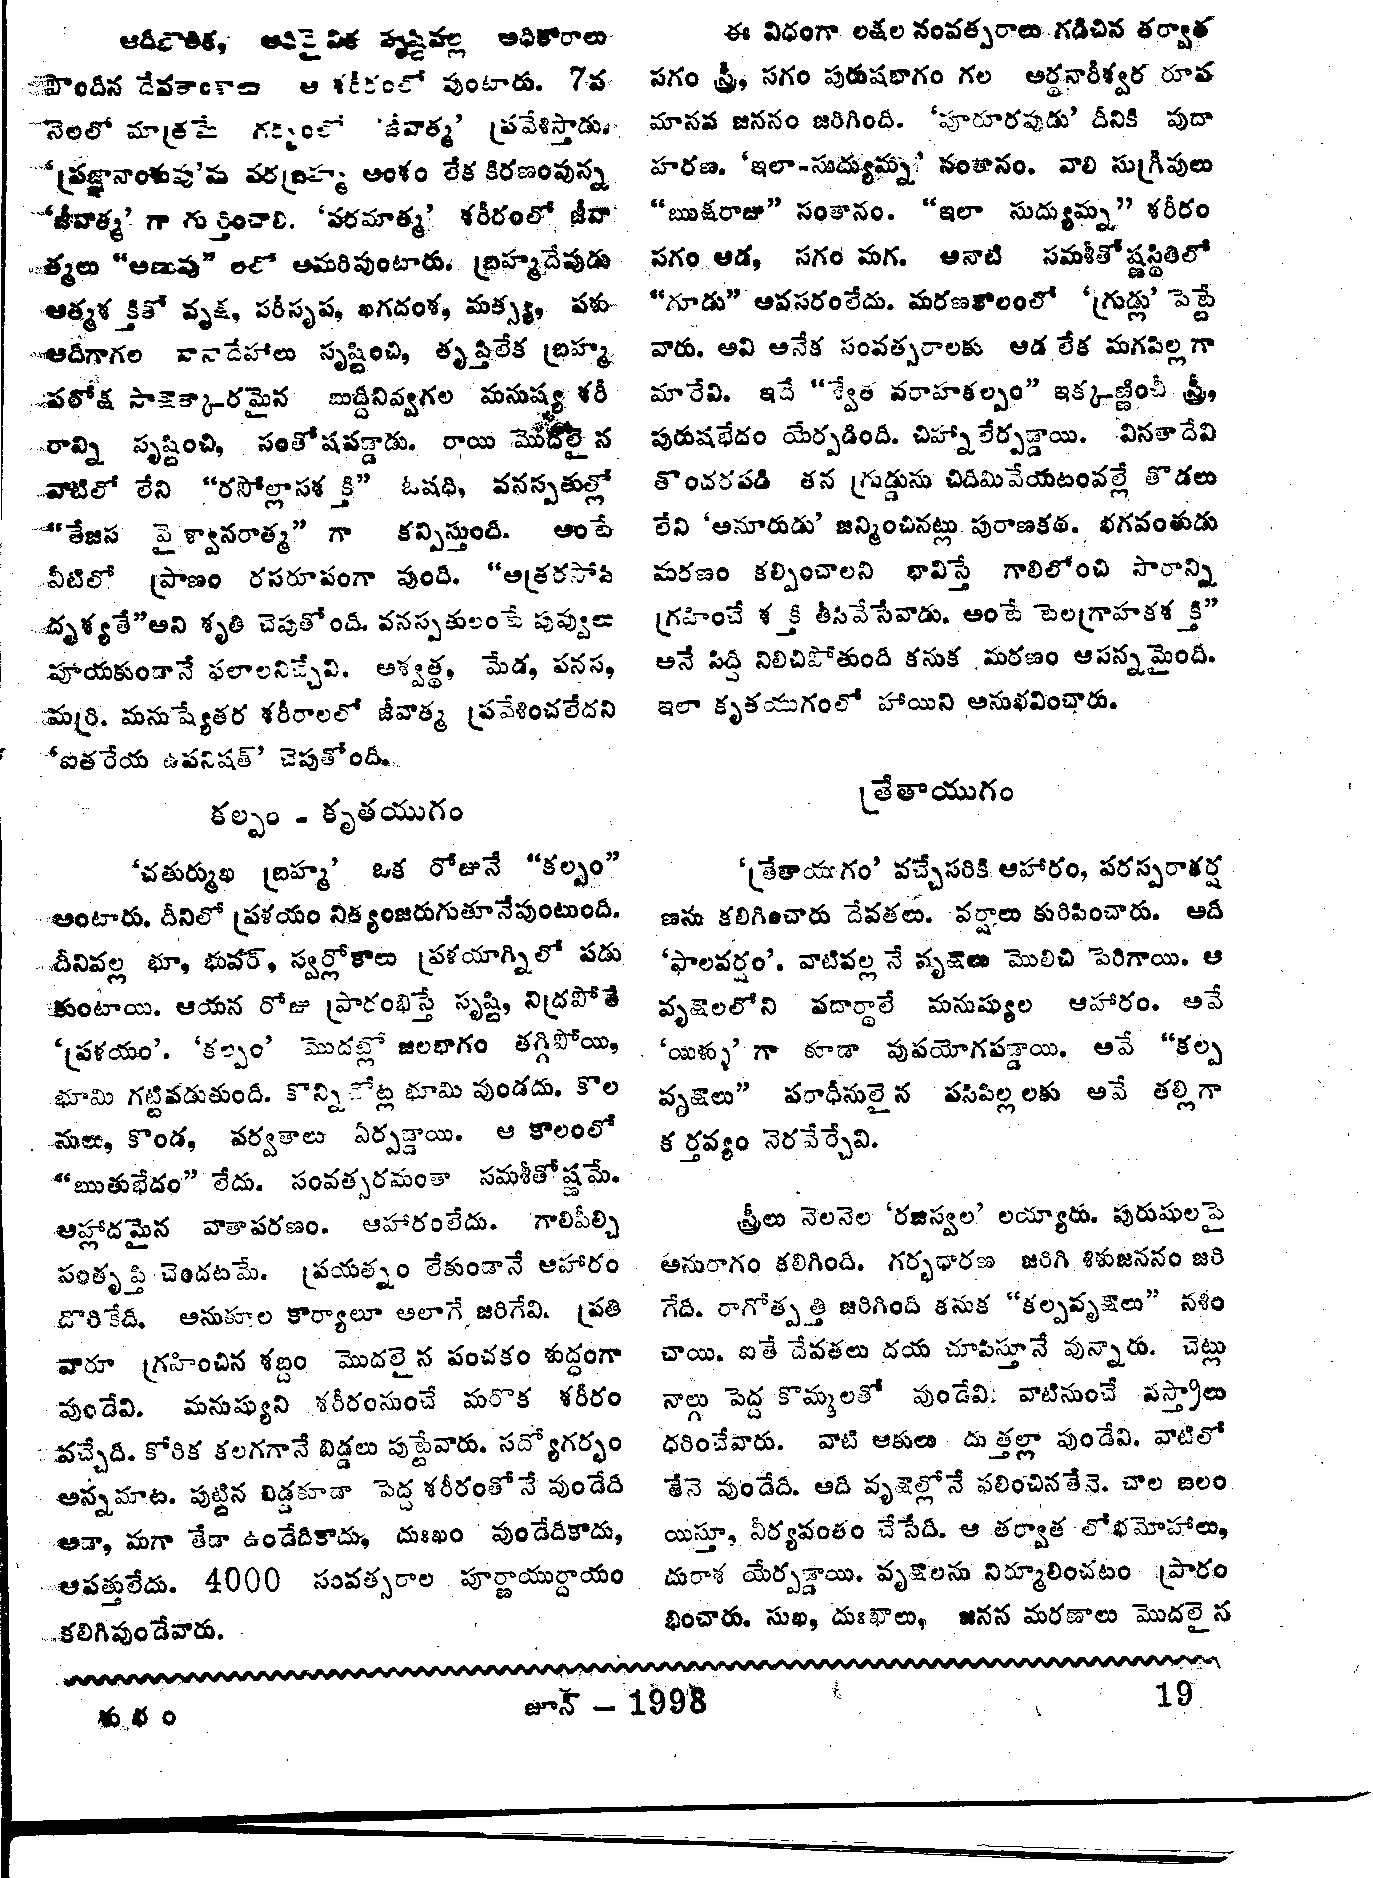 ఆదిభౌతిక, అధిదైవిక సృష్టివల్ల అధికారాలు
పొందిన దేవతాంశాలు ఆ శరీరంలో వుంటారు. 7వ
నెలలో మాత్రమే గర్భంలో 'జీవాత్మ' ప్రవేశిస్తాడు.
'ప్రజ్ఞానాంశువు'ను పరబ్రహ్మ అంశం లేక కిరణంవున్న
'జీవాత్మ' గా గుర్తించాలి. 'పరమాత్మ' శరీరంలో జీవా
త్మలు "అణువు" లలో అమరివుంటారు. బ్రహ్మదేవుడు
ఆత్మశక్తితో వృక్ష, పరీసృప, ఖగదంశ, మత్స్య, పశు
ఆదిగాగల నానాదేహాలు సృష్టించి, తృప్తిలేక బ్రహ్మ
పరోక్ష సాక్షాత్కారమైన బుద్ధినివ్వగల మనుష్య శరీ
రాన్ని సృష్టించి, సంతోషపడ్డాడు. రాయి మొదలైన
వాటిలో లేని "రసోల్లాసశక్తి" ఓషధి, వనస్పతుల్లో
"తేజస వైశ్వానరాత్మ" గా కన్పిస్తుంది. అంటే
వీటిలో ప్రాణం రసరూపంగా వుంది. "అత్రరసోపి
దృశ్యతే"అని శృతి చెపుతోంది. వనస్పతులంటే పువ్వులు
పూయకుండానే ఫలాలనిచ్చేవి. అశ్వత్థ, మేడ, పనస,
మర్రి. మనుష్యేతర శరీరాలలో జీవాత్మ ప్రవేశించలేదని
'ఐతరేయ ఉపనిషత్' చెపుతోంది.
కల్పం - కృతయుగం
'చతుర్ముఖ బ్రహ్మ' ఒక రోజునే "కల్పం"
అంటారు. దీనిలో ప్రళయం నిత్యంజరుగుతూనేవుంటుంది.
దీనివల్ల భూ, భువర్, స్వర్లోకాలు ప్రళయాగ్నిలో పడు
కుంటాయి. ఆయన రోజు ప్రారంభిస్తే సృష్టి, నిద్రపోతే
'ప్రళయం'. 'కల్పం' మొదట్లో జలభాగం తగ్గిపోయి,
భూమి గట్టిపడుతుంది. కొన్నిచోట్ల భూమి వుండదు. కొల
నులు, కొండ, పర్వతాలు ఏర్పడ్డాయి. ఆ కాలంలో
"ఋతుభేదం" లేదు. సంవత్సరమంతా సమశీతోష్ణమే.
ఆహ్లాదమైన వాతావరణం. ఆహారంలేదు. గాలిపీల్చి
సంతృప్తి చెందటమే. ప్రయత్నం లేకుండానే ఆహారం
దొరికేది. అనుకూల కార్యాలూ అలాగే జరిగేవి. ప్రతి
వారూ గ్రహించిన శబ్దం మొదలైన పంచకం శుద్ధంగా
వుండేవి. మనుష్యుని శరీరంనుంచే మరొక శరీరం
వచ్చేది. కోరిక కలగగానే బిడ్డలు పుట్టేవారు. సద్యోగర్భం
అన్నమాట. పుట్టిన బిడ్డకూడా పెద్ద శరీరంతోనే వుండేది
ఆడా, మగా తేడా ఉండేదికాదు, దుఃఖం వుండేదికాదు,
ఆపత్తులేదు. 4000 సంవత్సరాల పూర్ణాయుర్దాయం
కలిగివుండేవారు.
ఈ విధంగా లక్షల సంవత్సరాలు గడిచిన తర్వాత
సగం స్త్రీ, సగం పురుషభాగం గల అర్ధనారీశ్వర రూప
మానవ జననం జరిగింది. 'పురూరవుడు' దీనికి వుదా
హరణ. 'ఇలా-సుద్యుమ్న' సంతానం. వాలి సుగ్రీవులు
"ఋక్షరాజు" సంతానం. "ఇలా సుద్యుమ్న" శరీరం
సగం ఆడ, సగం మగ. ఆనాటి సమశీతోష్ణస్థితిలో
"గూడు" అవసరంలేదు. మరణకాలంలో 'గ్రుడ్లు' పెట్టే
వారు. అవి అనేక సంవత్సరాలకు ఆడ లేక మగపిల్లగా
మారేవి. ఇదే "శ్వేత వరాహకల్పం" ఇక్కణ్ణించీ స్త్రీ,
పురుషభేదం యేర్పడింది. చిహ్నాలేర్పడ్డాయి. వినతాదేవి
తొందరపడి తన గ్రుడ్డును చిదిమివేయటంవల్లే తొడలు
లేని 'అనూరుడు' జన్మించినట్లు పురాణకథ. భగవంతుడు
మరణం కల్పించాలని భావిస్తే గాలిలోంచి సారాన్ని
గ్రహించే శక్తి తీసివేసేవాడు. అంటే పెలగ్రాహకశక్తి"
అనే సిద్ధి నిలిచిపోతుంది కనుక మరణం ఆసన్నమైంది.
ఇలా కృతయుగంలో హాయిని అనుభవించారు.
త్రేతాయుగం
'త్రేతాయుగం' వచ్చేసరికి ఆహారం, పరస్పరాకర్ష
ణను కలిగించారు దేవతలు. వర్షాలు కురిపించారు. అది
'ఫాలవర్షం'. వాటివల్లనే వృక్షాలు మొలిచి పెరిగాయి. ఆ
వృక్షాలలోని పదార్థాలే మనుష్యుల ఆహారం. అవే
'యిళ్ళు' గా కూడా వుపయోగపడ్డాయి. అవే "కల్ప
వృక్షాలు" పరాధీనులైన పసిపిల్లలకు అవే తల్లిగా
కర్తవ్యం నెరవేర్చేవి.
స్త్రీలు నెలనెల 'రజస్వల' లయ్యారు. పురుషులపై
అనురాగం కలిగింది. గర్భధారణ జరిగి శిశుజననం జరి
గేది. రాగోత్పత్తి జరిగింది కనుక "కల్పవృక్షాలు" నశిం
చాయి. ఐతే దేవతలు దయ చూపిస్తూనే వున్నారు. చెట్లు
నాల్గు పెద్ద కొమ్మలతో వుండేవి. వాటినుంచే వస్త్రాలు
ధరించేవారు. వాటి ఆకులు దుత్తల్లా వుండేవి. వాటిలో
తేనె వుండేది. అది వృక్షాల్లోనే ఫలించినతేనె. చాల బలం
యిస్తూ, వీర్యవంతం చేసేది. ఆ తర్వాత లోభమోహాలు,
దురాశ యేర్పడ్డాయి. వృక్షాలను నిర్మూలించటం ప్రారం
భించారు. సుఖ, దుఃఖాలు, జనన మరణాలు మొదలైన
శుభం జూన్ - 1998 19